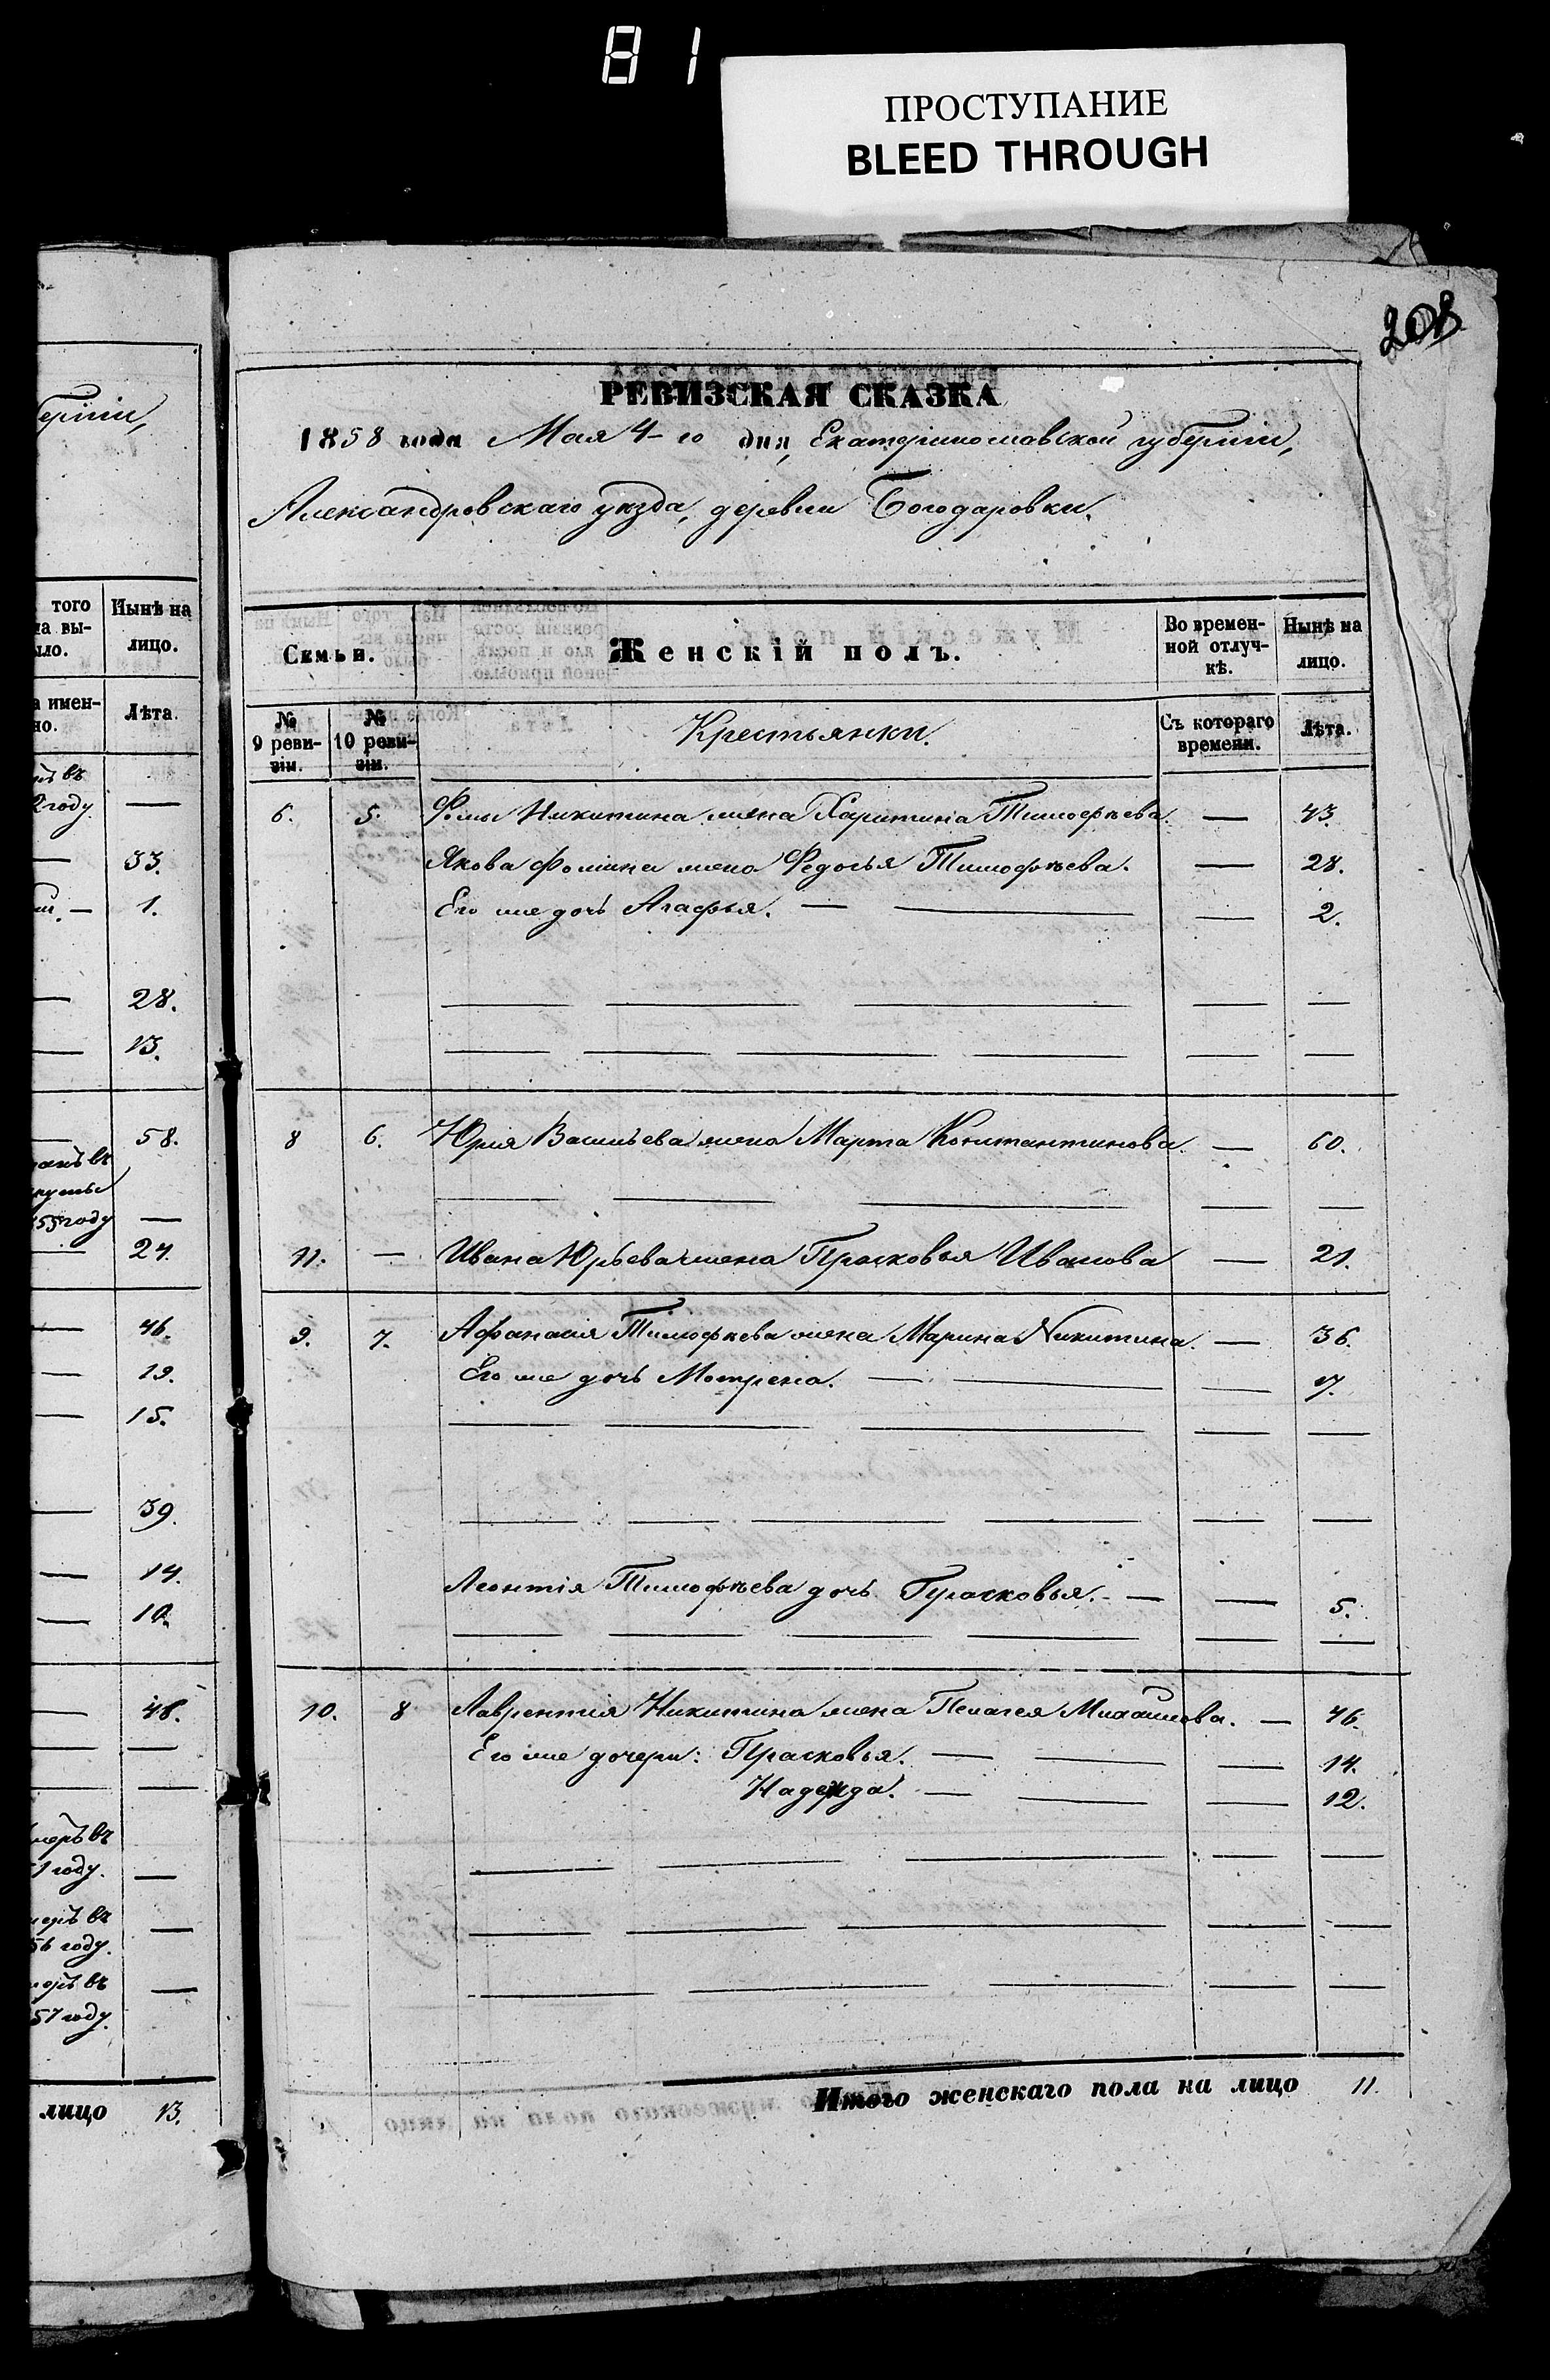 81
ПРОСТУПАНИЕ
BLEED THROUGH
208
РЕВИЗСКАЯ СКАЗКА
1858 года Мая 4-го дня, Екатеринославской губерніи,
Александровскаго уѣзда, деревни Богодаровки.
Семьи. Женскій полъ. Во времен-ной отлуч-кѣ. Нынѣ на лицо.
№ 9 реви-зіи. № 10 реви-зіи. Крестьянки. Съ котораго времени. Лѣта.
6. 5. Фомы Никитина жена Харитина Тимофѣева. — 43.
Якова Фомина жена Федосья Тимофѣева. — 28.
Его же дочь Агафья. — — — 2.
8 6. Юрія Васильева жена Марта Константинова. — 60.
11. — Ивана Юрьева жена Прасковья Иванова — 21.
9. 7. Афанасія Тимофѣева жена Марина Никитина. — 36.
Его же дочь Мотрена. — — — 7.
Леонтія Тимофѣева дочь Прасковья. — — 5.
10. 8 Лаврентія Никитина жена Пелагея — 46.
Его же дочери: Прасковья. — — — 14.
Надежда. — — — 12.
Итого женскаго пола на лицо 11.
берніи,
того
на вы-
ыло.
Нынѣ на
лицо.
а имен-
но.
Лѣта.
ъ въ
2 году. —
— 33.
— 1.
— 28.
— 13.
— 58.
въ
55 году —
— 24.
— 46.
— 19.
— 15.
— 39.
— 14.
— 10.
— 48.
— —
— —
меръ въ
51 году. —
меръ въ
56 году. —
меръ въ
57 году. —
лицо 13.